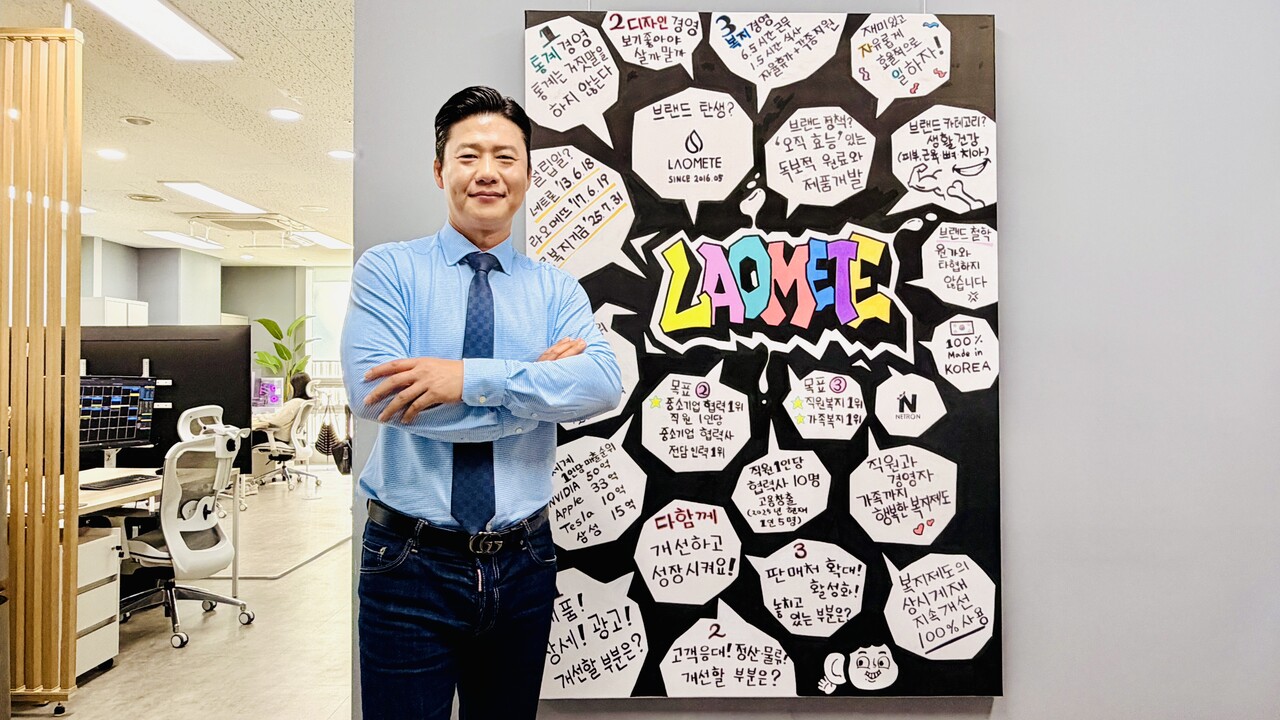 1
통계경영
통계는 거짓말을
하지 않는다
2 디자인 경영
보기좋아야
살까말까
3
복지경영
6.5시간 근무
1.5시간 식사
재미있고
자유롭게
효율적으로
일하자!
브랜드 탄생?
LAOMETE
SINCE 2016.05
브랜드 정책?
'오직 효능' 있는
독보적 원료와
제품개발
브랜드 카테고리?
생활건강
(피부,근육,뼈,치아)
설립일?
네트론 '13.6.18
라오메뜨 '17.6.19
복지기금 '25.7.31
LAOMETE
브랜드 철학
원가와
타협하지
않습니다
100%
Made in
KOREA
목표 ②
중소기업 협력 1위
직원 1인당
중소기업 협력사
전담인력 1위
목표 ③
직원복지 1위
가족복지 1위
N
NETRON
1인당 매출순위
NVIDIA 50억
Apple 33억
Tesla 10억
삼성 15억
직원 1인당
협력사 10명
고용창출
(2025년 현재
1인 5명)
직원과
경영자
가족까지
행복한 복지제도
다함께
개선하고
성장시켜요!
3
판매처 확대!
활성화!
놓치고
있는 부분은?
복지제도의
상시게재
지속개선
100% 사용
상세! 광고!
개선할 부분은?
2
고객응대! 정산·물류!
개선할 부분은?